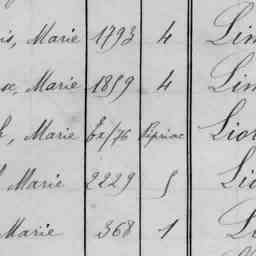 is, Marie 1793 4 Lim
Marie 1859 4 Lim
Marie Ex/76 Pipriac Lio
Marie 2229 5 Lio
Marie 368 1